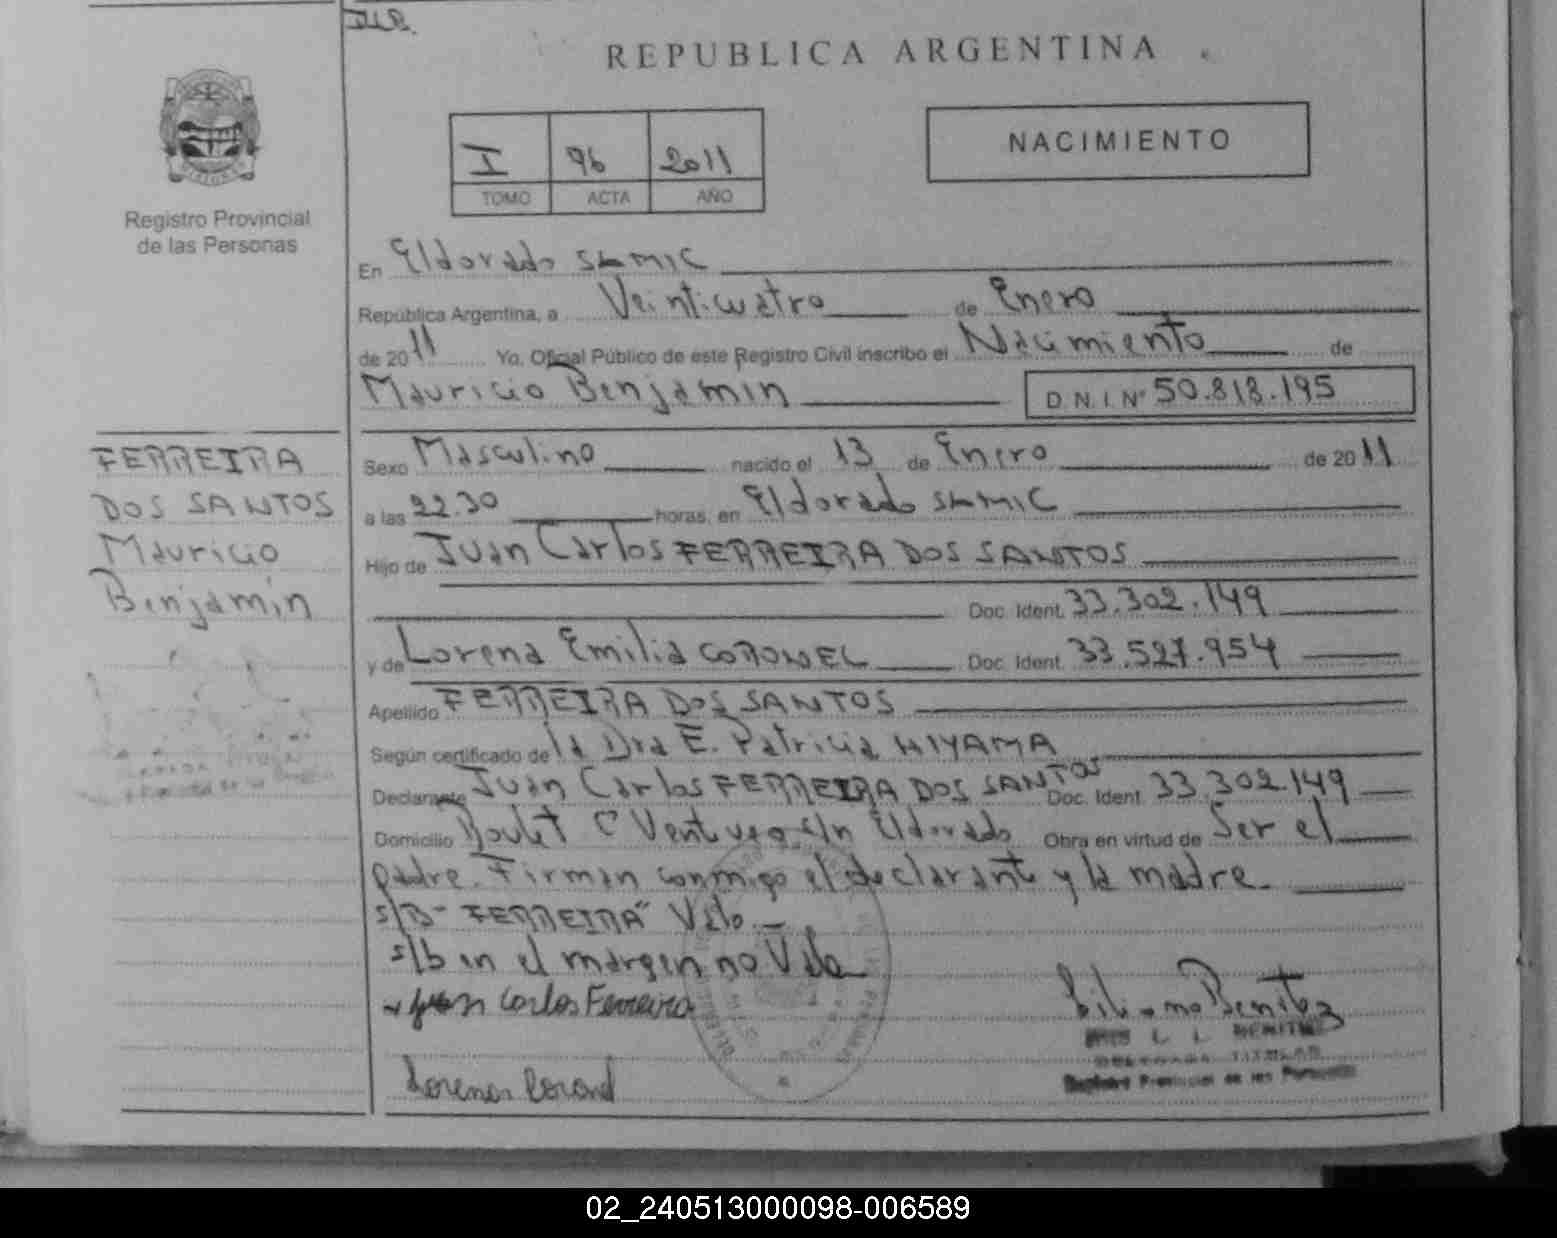 REPUBLICA ARGENTINA
NACIMIENTO
I 96 2011
TOMO ACTA AÑO
Registro Provincial
de las Personas
En Eldorado SAMIC
República Argentina, a Veinticuatro de Enero
de 2011 Yo, Oficial Público de este Registro Civil inscribo el Nacimiento de
Mauricio Benjamin D.N.I. Nº 50.818.195
FERREIRA
DOS SANTOS
Mauricio
Benjamin
Sexo Masculino nacido el 13 de Enero de 2011
a las 22.30 horas, en Eldorado SAMIC
Hijo de Juan Carlos FERREIRA DOS SANTOS
Doc. Ident. 33.302.149
y de Lorena Emilia CORONEL Doc. Ident. 33.527.954
Apellido FERREIRA DOS SANTOS
Según certificado de la Dra E. Patricia HIYAMA
Declarante Juan Carlos FERREIRA DOS SANTOS Doc. Ident. 33.302.149
Domicilio s/n Eldorado Obra en virtud de Ser el
padre. Firman conmigo el declarante y la madre
s/B "FERREIRA" Vale
s/b en el margen no Vale
Juan Carlos Ferreira
Lorena Coronel
BENITEZ
Registro Provincial de las Personas
02_240513000098-006589